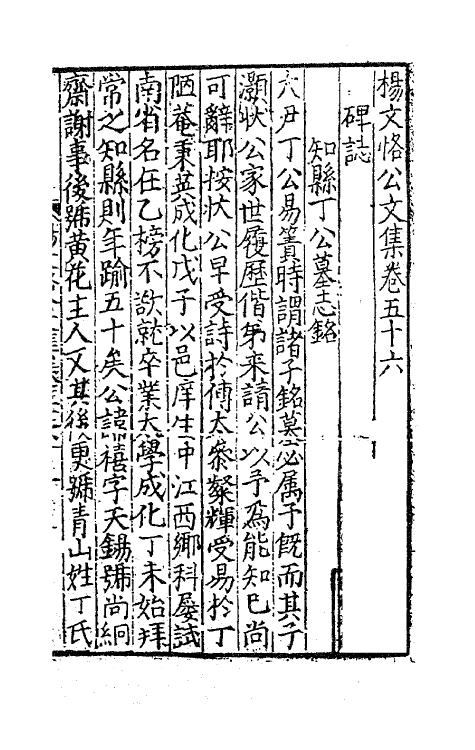 楊文恪公文集卷五十六
碑誌
知縣丁公墓志銘
六尹丁公易簀時謂諸子銘墓必属予既而其子
灝狀公家世履歷偕弟来請公以予爲能知已尚
可辭耶按狀公早受詩於傅太叅粲輝受易於丁
陋菴秉英成化戊子以邑庠生中江西鄉科屡試
南省名在乙榜不欲就卒業太學成化丁未始拜
常之知縣則年踰五十矣公諱禧字天錫號尚絅
齋謝事後號黄花主人又其後更號青山姓丁氏